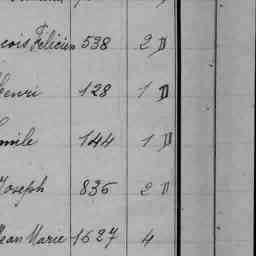 cois Félicien 538 2 D
Henri 128 1 D
Emile 144 1 D
Joseph 836 2 D
Jean Marie 1627 4